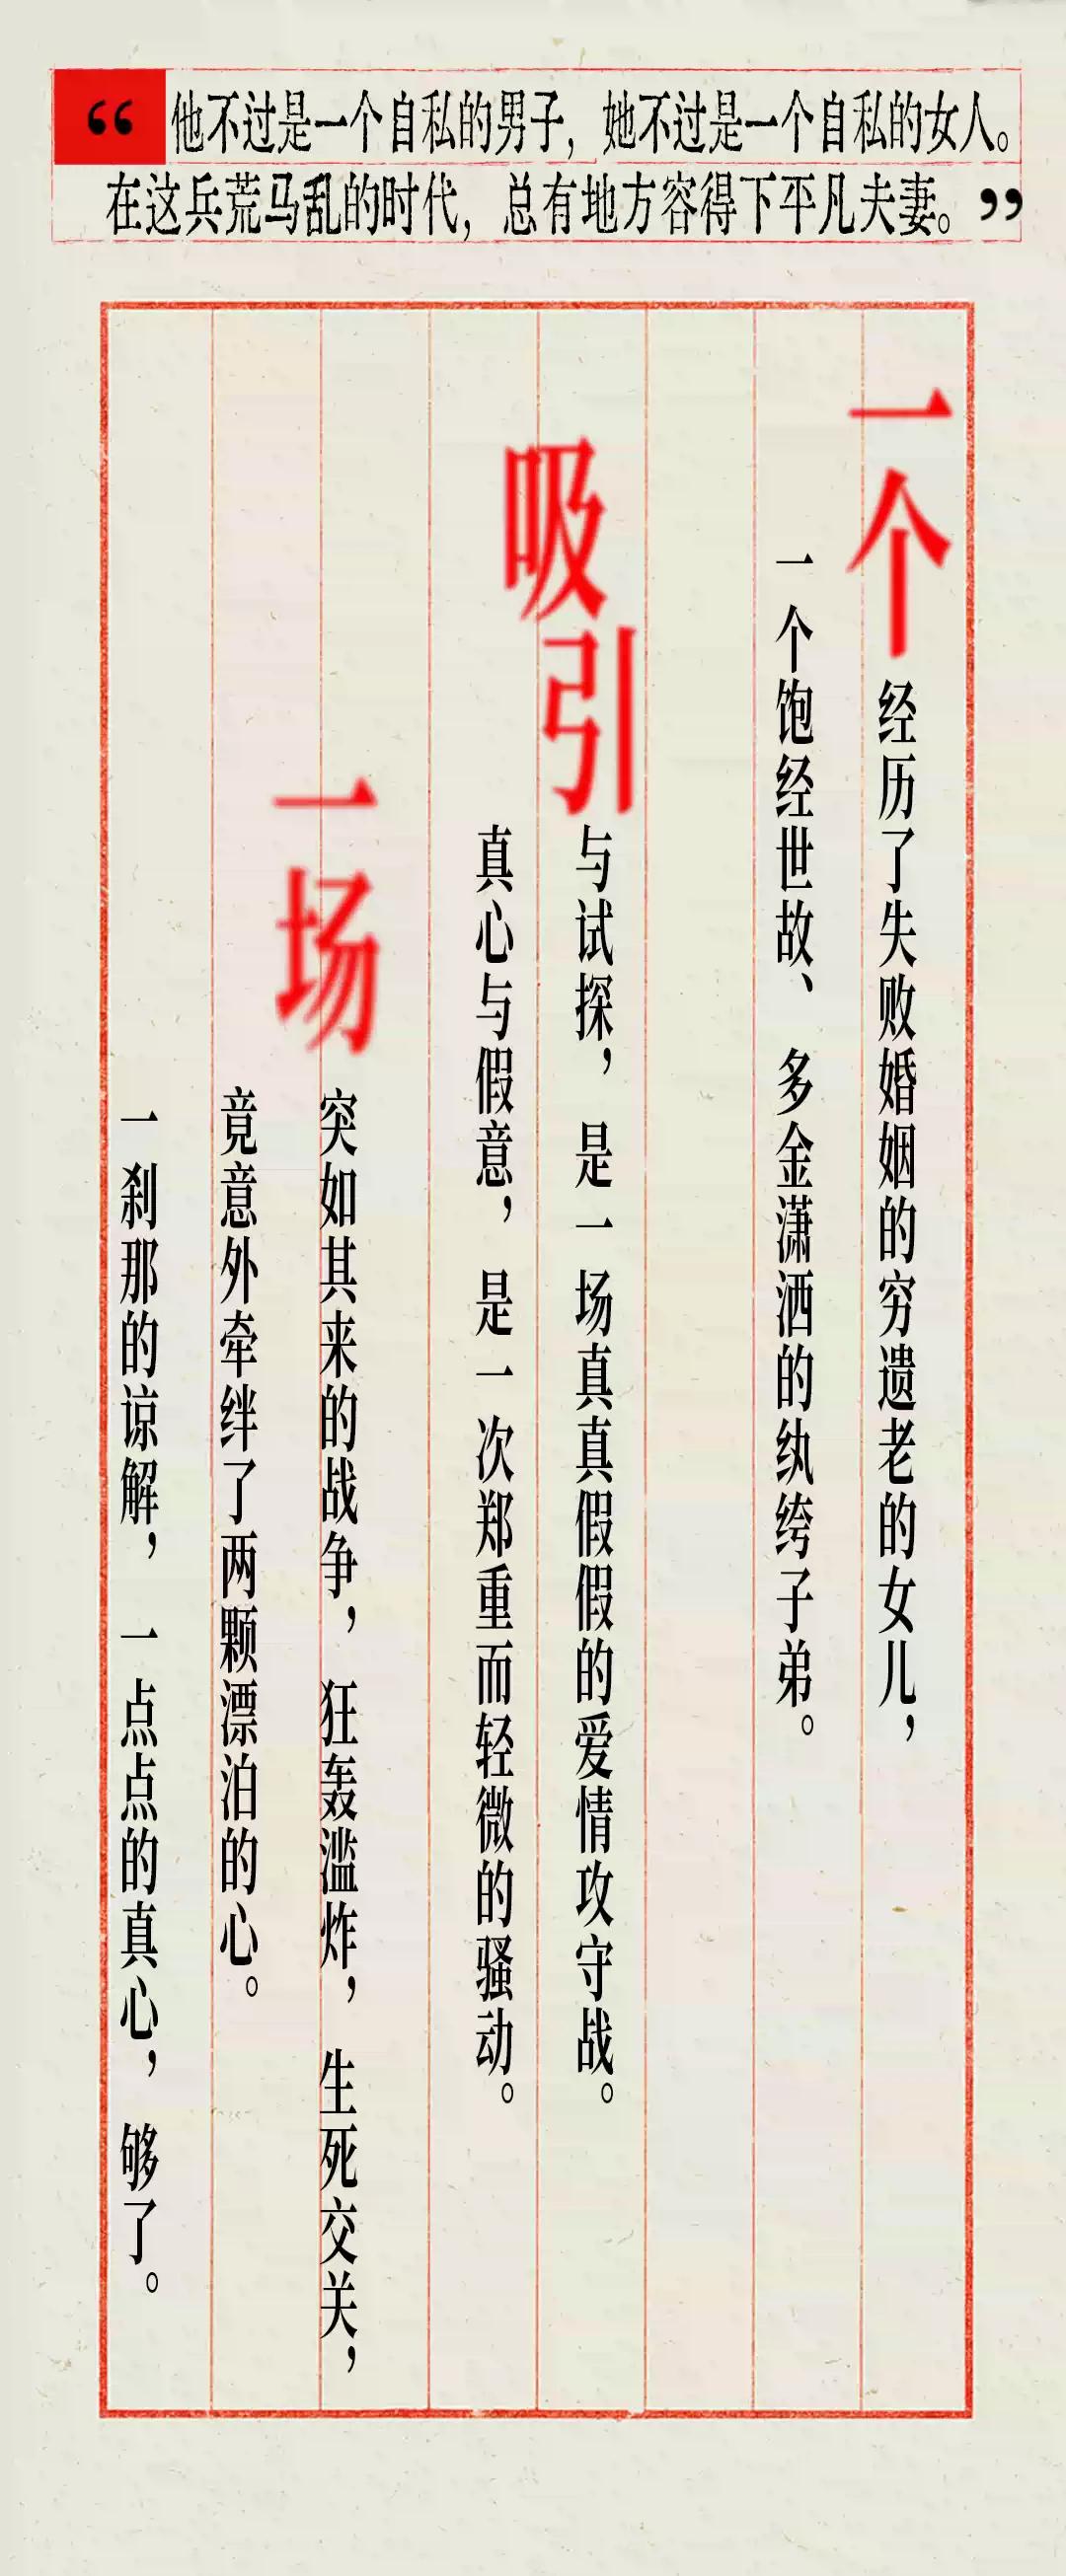 “他不过是一个自私的男子，她不过是一个自私的女人。
在这兵荒马乱的时代，总有地方容得下平凡夫妻。”
一个经历了失败婚姻的穷遗老的女儿，
一个饱经世故、多金潇洒的纨绔子弟。
吸引与试探，是一场真真假假的爱情攻守战。
真心与假意，是一次郑重而轻微的骚动。
一场突如其来的战争，狂轰滥炸，生死交关，
竟意外牵绊了两颗漂泊的心。
一刹那的谅解，一点点的真心，够了。